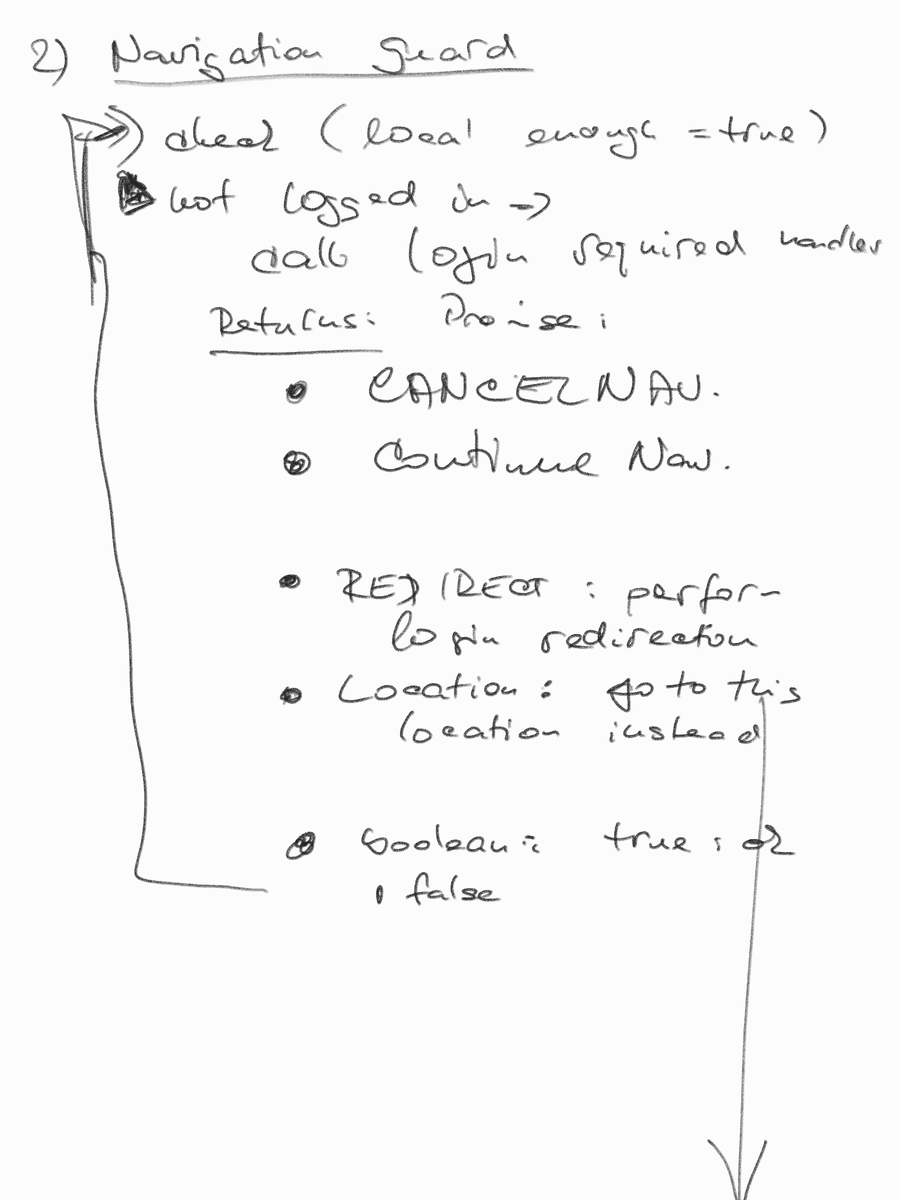 2) Navigation Guard
check (local enough = true)
not logged in =>
call login required handler
Returns: Promise:
• CANCEL NAV.
• Continue Nav.
• REDIRECT : perform
login redirection
• Location : go to this
location instead
• boolean : true : ok
• false